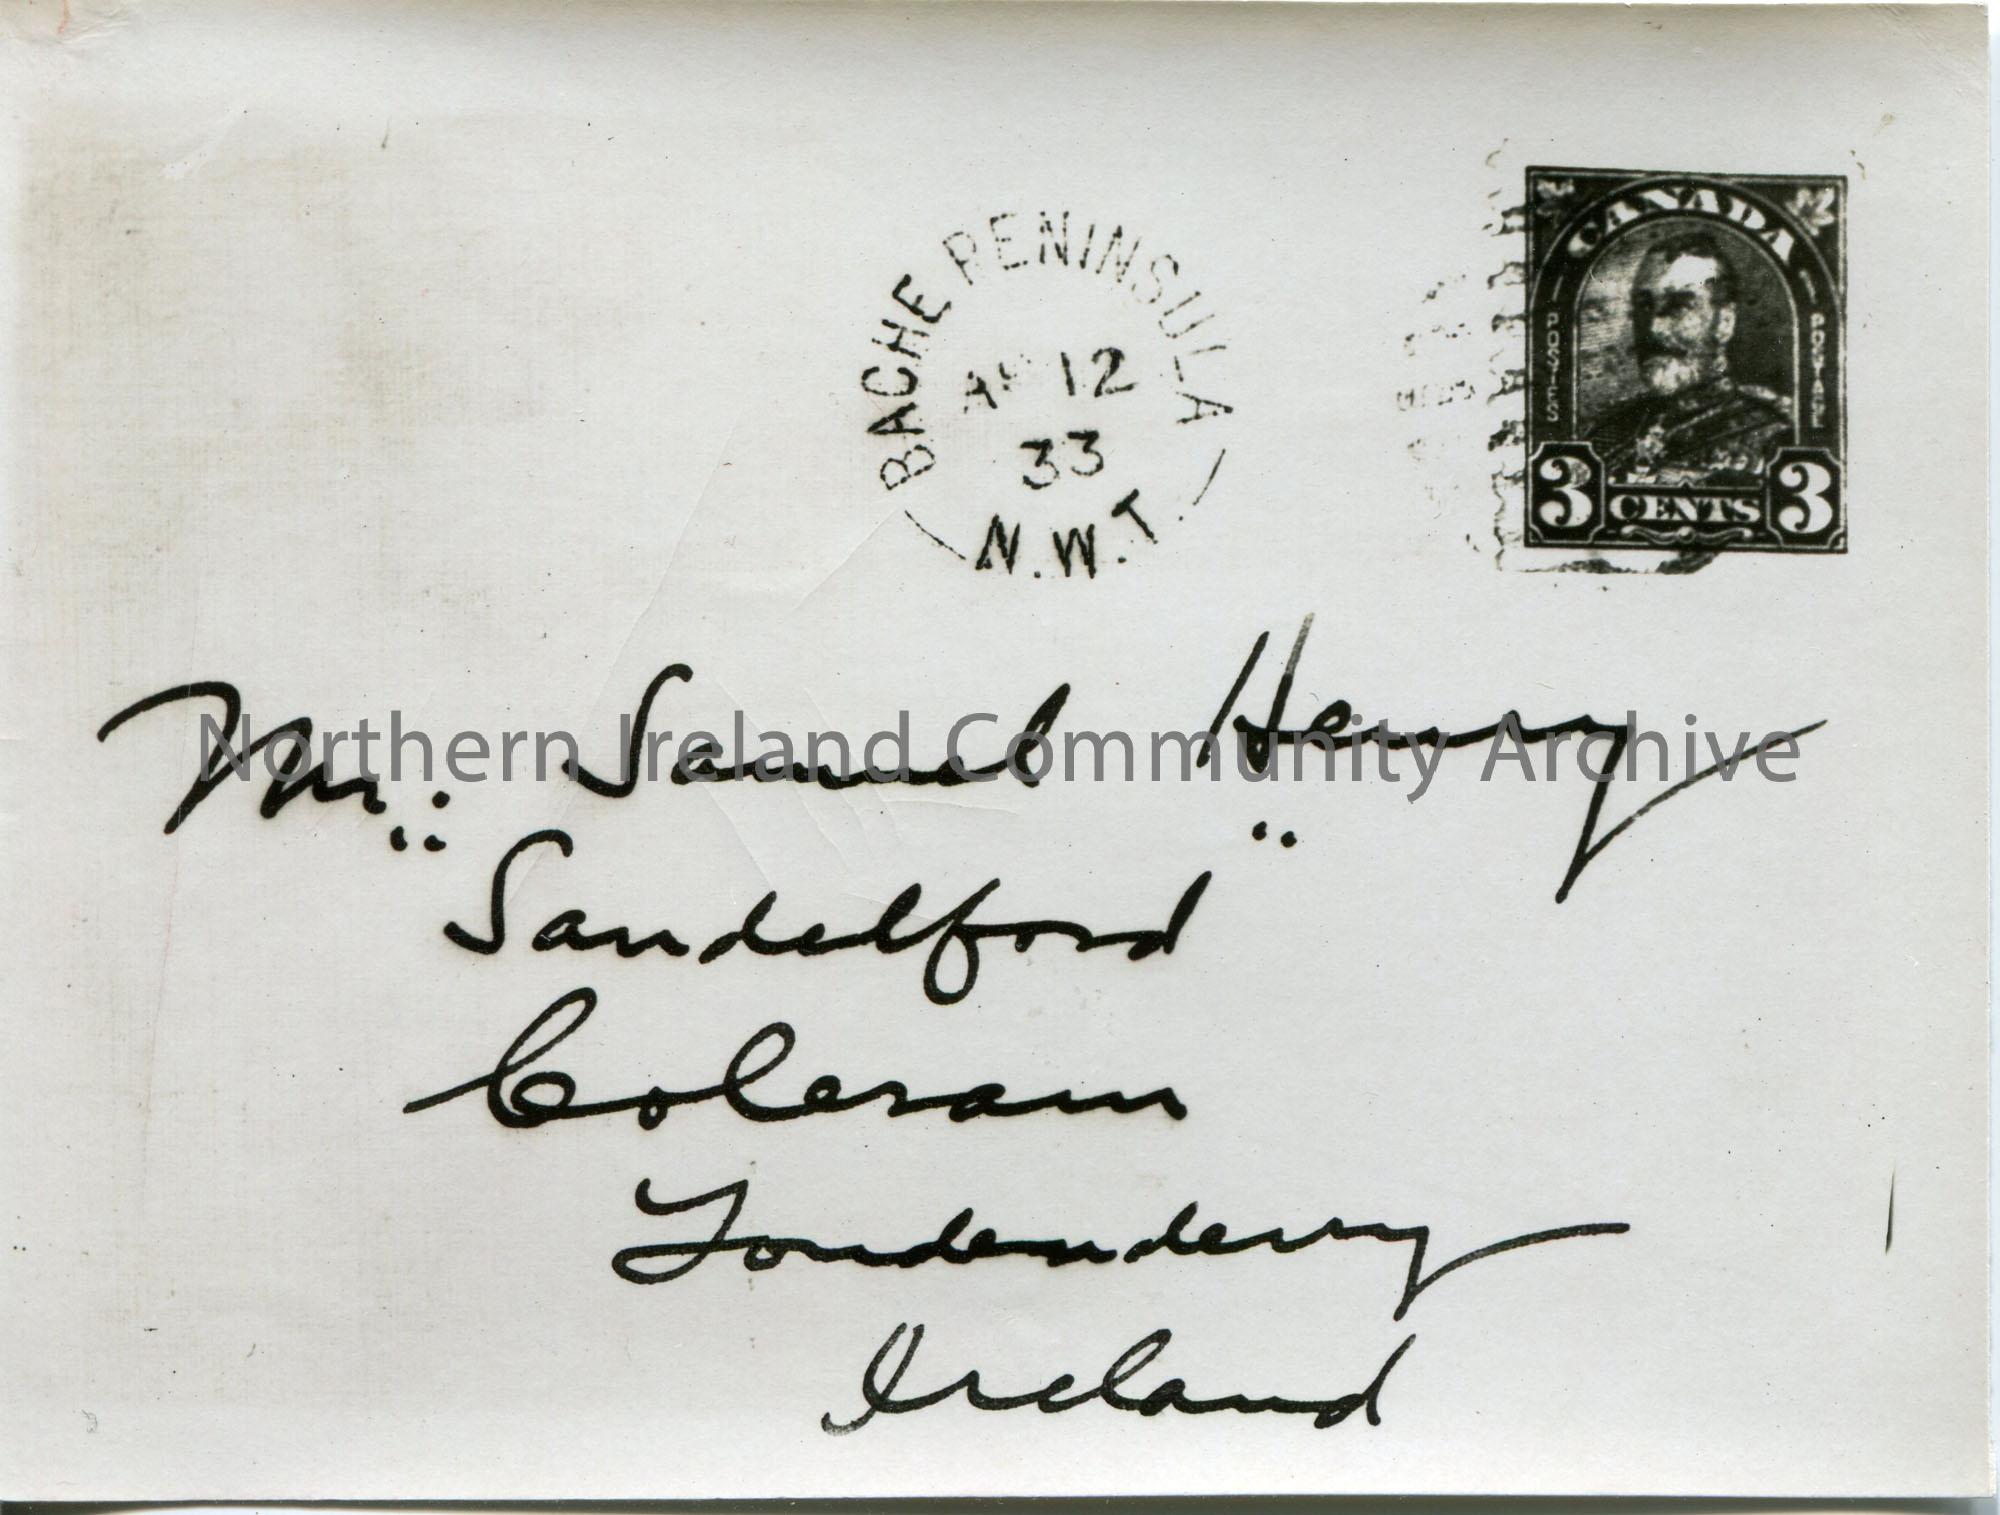 BACHE PENINSULA
AP 12
33
N.W.T.
CANADA
POSTES
POSTAGE
3 CENTS 3
Mr. Samuel Henry
"Sandelford"
Coleram
Londonderry
Ireland
Northern Ireland Community Archive